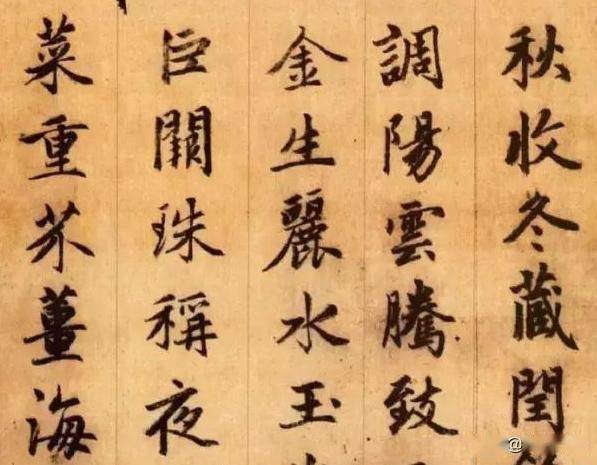 秋收冬藏閏
調陽雲騰致
金生麗水玉
巨闕珠稱夜
菜重芥薑海